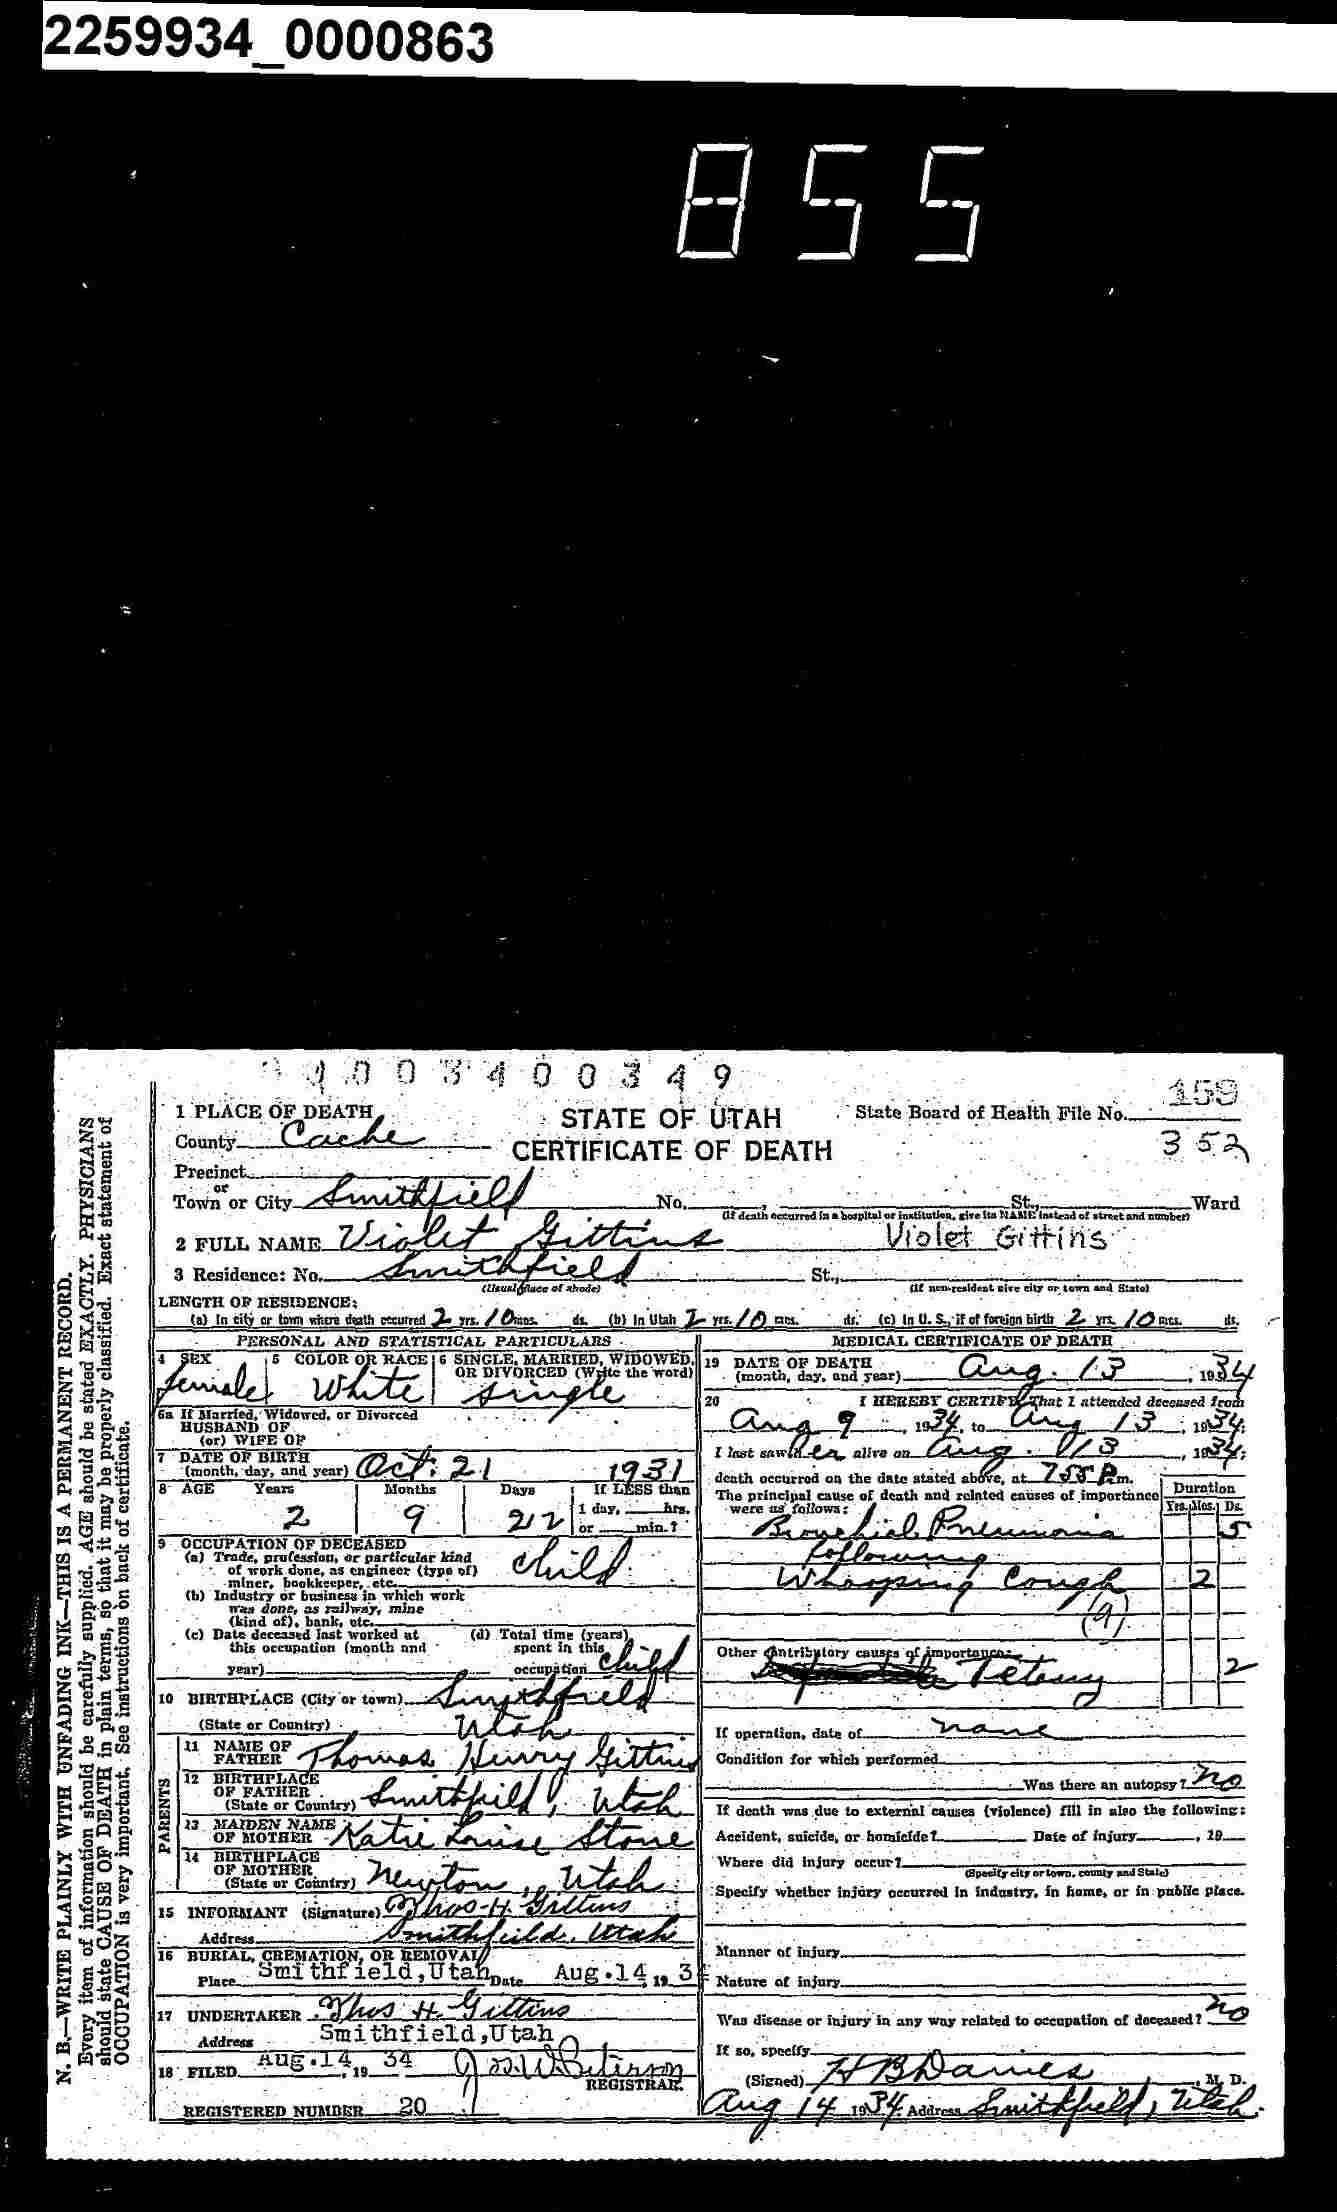 2259934_0000863
855
N. B.—WRITE PLAINLY WITH UNFADING INK—THIS IS A PERMANENT RECORD.
Every item of information should be carefully supplied. AGE should be stated EXACTLY. PHYSICIANS
should state CAUSE OF DEATH in plain terms, so that it may be properly classified. Exact statement of
OCCUPATION is very important. See instructions on back of certificate.
003400349
1 PLACE OF DEATH
STATE OF UTAH
State Board of Health File No. 159
County Cache
CERTIFICATE OF DEATH
352
Precinct
or
Town or City Smithfield No. St., Ward
(If death occurred in a hospital or institution, give its NAME instead of street and number)
2 FULL NAME Violet Gittins Violet Gittins
3 Residence: No. Smithfield St.,
(Usual place of abode) (If non-resident give city or town and State)
LENGTH OF RESIDENCE:
(a) In city or town where death occurred 2 yrs. 10 mos. ds. (b) In Utah 2 yrs. 10 mos. ds. (c) In U. S., if of foreign birth 2 yrs. 10 mos. ds.
PERSONAL AND STATISTICAL PARTICULARS
4 SEX female
5 COLOR OR RACE White
6 SINGLE, MARRIED, WIDOWED, OR DIVORCED (Write the word) single
6a If Married, Widowed, or Divorced
HUSBAND OF
(or) WIFE OF
7 DATE OF BIRTH
(month, day, and year) Oct. 21 1931
8 AGE Years Months Days If LESS than
2 9 22 1 day, hrs.
or min.?
9 OCCUPATION OF DECEASED
(a) Trade, profession, or particular kind
of work done, as engineer (type of)
miner, bookkeeper, etc. child
(b) Industry or business in which work
was done, as railway, mine
(kind of), bank, etc.
(c) Date deceased last worked at
this occupation (month and
year)
(d) Total time (years)
spent in this
occupation child
10 BIRTHPLACE (City or town) Smithfield
(State or Country) Utah
PARENTS
11 NAME OF
FATHER Thomas Henry Gittins
12 BIRTHPLACE
OF FATHER
(State or Country) Smithfield, Utah
13 MAIDEN NAME
OF MOTHER Katie Louise Stone
14 BIRTHPLACE
OF MOTHER
(State or Country) Newton, Utah
15 INFORMANT (Signature) Thos. H. Gittins
Address Smithfield, Utah
16 BURIAL, CREMATION, OR REMOVAL
Place Smithfield,Utah Date Aug.14, 19 34
17 UNDERTAKER Thos H. Gittins
Address Smithfield,Utah
18 FILED Aug.14, 19 34
REGISTRAR.
REGISTERED NUMBER 20
MEDICAL CERTIFICATE OF DEATH
19 DATE OF DEATH
(month, day, and year) Aug. 13, 1934
20 I HEREBY CERTIFY, That I attended deceased from
Aug 9, 1934, to Aug 13, 1934;
I last saw her alive on Aug. 13, 1934;
death occurred on the date stated above, at 7:55 P.m.
The principal cause of death and related causes of importance
were as follows:
Duration
Yrs. Mos. Ds.
Bronchial Pneumonia 5
following
Whooping Cough 2
(9)
Other contributory causes of importance:
Tetany 2
If operation, date of none
Condition for which performed
Was there an autopsy? no
If death was due to external causes (violence) fill in also the following:
Accident, suicide, or homicide? Date of injury , 19
Where did injury occur?
(Specify city or town, county and State)
Specify whether injury occurred in industry, in home, or in public place.
Manner of injury
Nature of injury
Was disease or injury in any way related to occupation of deceased? no
If so, specify
(Signed) H B Daines, M. D.
Aug 14 1934 Address Smithfield, Utah.